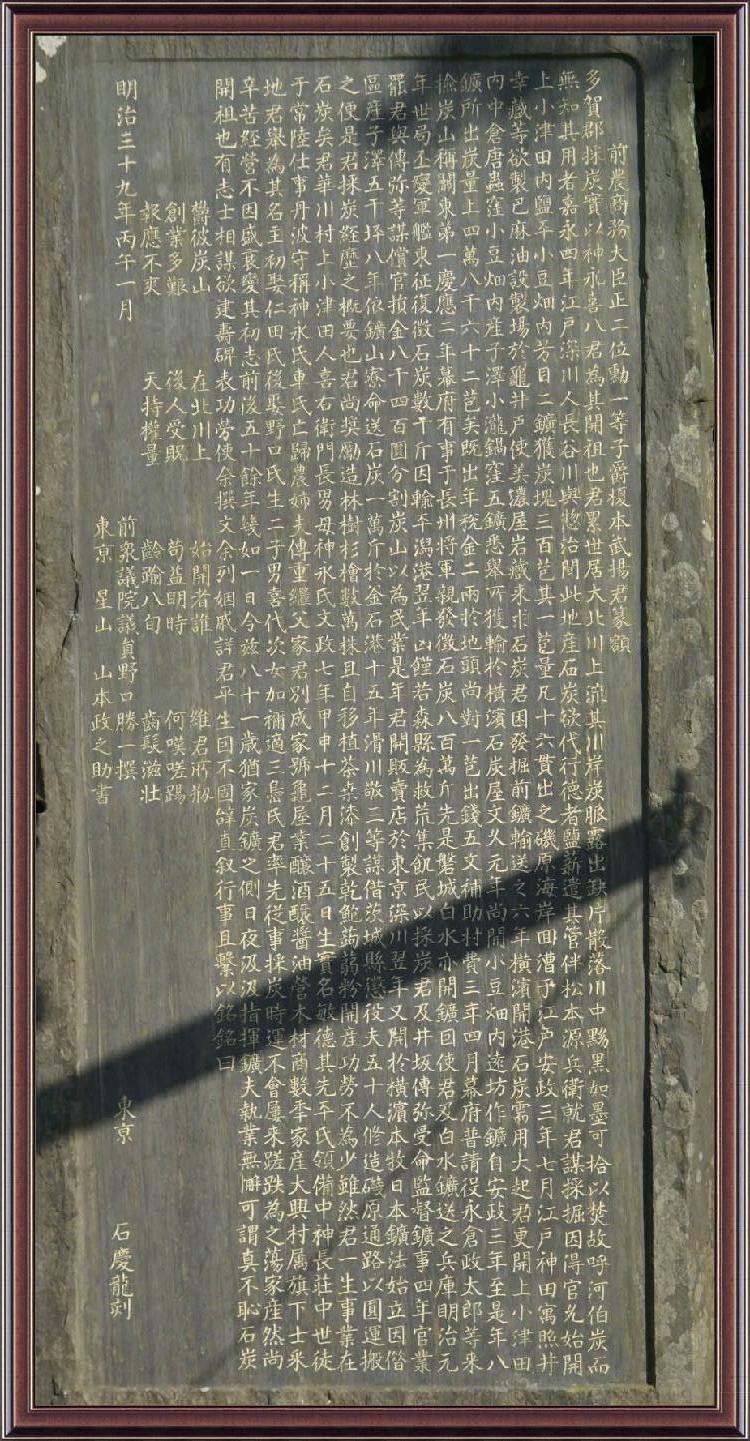 前農商務大臣正二位勳一等子爵榎本武揚君篆額
多賀郡採炭實以神永喜八君為其開祖也君累世居大北川上流其川岸炭脈露出缺片散落川中黟黒如墨可拾以焚故呼河伯炭而
無知其用者嘉永四年江戸深川人長谷川與惣治聞此地産石炭欲代行德者鹽薪遣其管伴松本源兵衛就君謀採掘因得官允始開
上小津田内鹽平小豆畑内芳目二鑛獲炭塊三百苞其一苞量凡十六貫出之磯原海岸囬漕于江戸安政三年七月江戸神田寓照井
幸藏等欲製巴麻油設製場於龜井戸使美濃屋岩藏来求石炭君因發掘前鑛輸送之六年橫濱開港石炭需用大起君更開上小津田
内中倉唐蟲窪小豆畑内産子澤小瀧鍋窪五鑛悉舉所獲輸於橫濱石炭屋文久元年尚開小豆畑内遠坊作鑛自安政三年至是年八
鑛所出炭量上四萬八千六十二苞矣既出年税金二兩於地頭尚對一苞出錢五文補助村費三年四月幕府普請役永倉政太郎等来
撿炭山稱關東第一慶應二年幕府有事于長州將軍親發徴石炭八百萬斤先是磐城白水亦開鑛因使君及白水鑛送之兵庫明治元
年世局丕變軍艦東征復徴石炭數千斤因輸平潟港翌年凶饉若森縣為救荒集飢民以採炭君及井坂傳弥受命監督鑛事四年官業
罷君與傳弥等謀償官損金八千四百圓分割炭山以為民業是年君開販賣店於東京深川翌年又開於橫濱本牧日本鑛法始立因偕
區産子澤五千坪八年依鑛山寮命送石炭一萬斤於金石港十五年滑川敬三等謀借茨城縣懲役夫五十人修造磯原通路以圓運搬
之便是君採炭經歴之概要也君尚奨勵造林樹杉檜數萬株且自移植茶桒漆創製乾鮑蒟蒻粉開産功勞不為少雖然君一生事業在
石炭矣君華川村上小津田人喜右衛門長男母神永氏文政七年甲申十二月二十五日生實名敏德其先平氏領備中神長荘中世徒
于常陸仕事丹波守稱神永氏車氏亡歸農姉夫傳重繼父家君別成家號龜屋業釀酒釀醬油營木材商數年家産大興村属旗下士釆
地君舉為其名主初娶仁田氏後娶野口氏生二子男喜代次女加禰適三島氏君率先從事採炭時運不會屢来蹉跌為之蕩家産然尚
辛苦經營不因盛衰變其初志前後五十餘年幾如一日今茲八十一歳猶家炭鑛之側日夜汲汲指揮鑛夫執業無懈可謂真不恥石炭
開祖也有志士相謀欲建壽碑表功勞使余撰文余列姻戚詳君平生因不固辭直叙行事且繫以銘銘曰
欝彼炭山 在北川上 始開者誰 維君所剏
創業多艱 後人受貺 苟益明時 何嘆嗟踢
報應不爽 天持權量 齡踰八旬 齒髮滋壮
明治三十九年丙午一月
前衆議院議員野口勝一撰
東京 星山 山本政之助書
東京 石慶龍刻